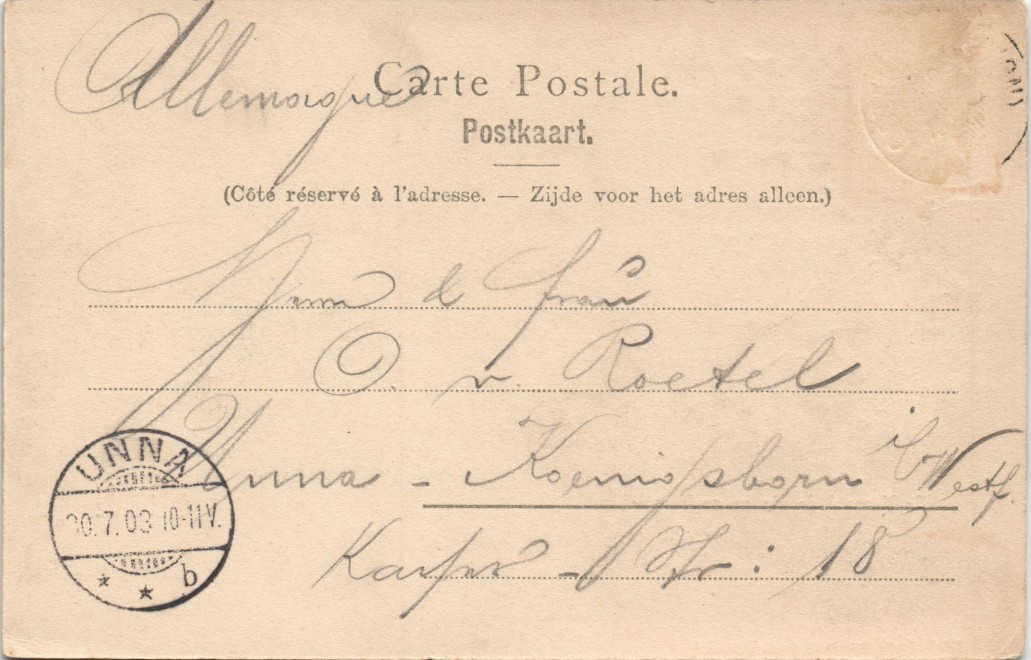 Allemagne
Carte Postale.
Postkaart.
(Côté réservé à l'adresse. — Zijde voor het adres alleen.)
Herrn & Frau
O. v. Roetel
Unna - Koenigsborn i/Westf.
Str: 18
UNNA
7.03 10-11V.
* * b